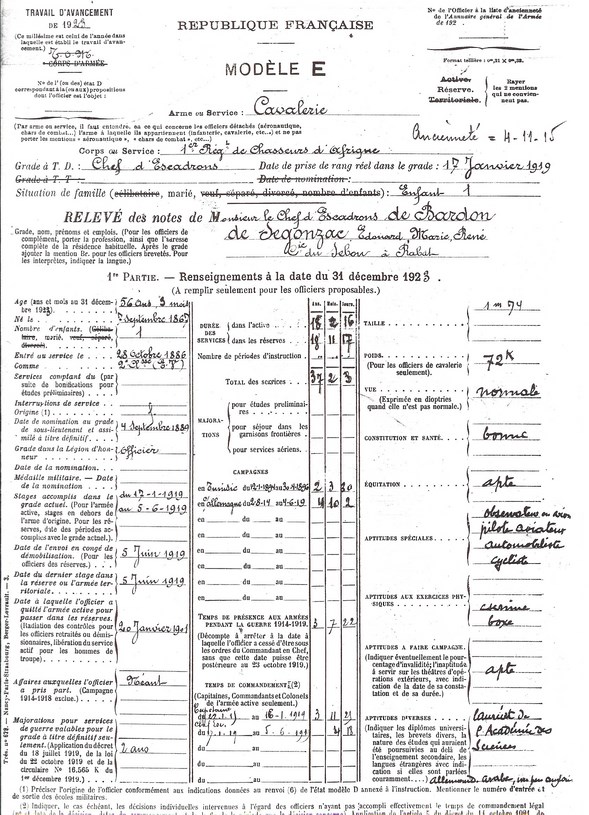 TRAVAIL D'AVANCEMENT
DE 1923
(Ce millésime est celui de l'année dans
laquelle est établi le travail d'avan-
cement.) T.O.M.
CORPS D'ARMÉE.
N° de l' (ou des) état D
correspondant à la (ou aux) propositions
dont l'officier est l'objet :
RÉPUBLIQUE FRANÇAISE
MODÈLE E
N° de l'Officier à la liste d'ancienneté
de l'Annuaire général de l'Armée
de 192 .
Format tellière : 0m,21 × 0m,32.
Active.
Réserve.
Territoriale.
Rayer
les 2 mentions
qui ne convien-
nent pas.
Arme ou Service : Cavalerie
(Par arme ou service, il faut entendre, au ce qui concerne les officiers détachés (aéronautique,
chars de combat...) l'arme à laquelle ils appartiennent (infanterie, cavalerie, etc...) et ne pas
porter les mentions « aéronautique », « chars de combat », etc...)
Ancienneté = 4-11-15
Corps ou Service : 1er Régt de Chasseurs d'Afrique
Grade à T. D. : Chef d'Escadrons Date de prise de rang réel dans le grade : 17 Janvier 1919
Grade à T. T. : Date de nomination :
Situation de famille (célibataire, marié, veuf, séparé, divorcé, nombre d'enfants) : Enfant 1
RELEVÉ des notes de Monsieur le Chef d'Escadrons de Bardon
de Segonzac, Edouard, Marie, René
Cie du Sebou à Rabat
Grade, nom, prénoms et emplois. (Pour les officiers
de complément, porter la profession, ainsi que l'adresse
complète de la résidence habituelle. Après le grade
ajouter la mention Br. pour les officiers brevetés. Pour
les interprètes, indiquer la langue.)
1re PARTIE. — Renseignements à la date du 31 décembre 1923.
(A remplir seulement pour les officiers proposables.)
Age (ans et mois au 31 décem-
bre 1923) 56 ans 3 mois
Né le Septembre 1867
Nombre d'enfants. (Céliba-
taire, marié, veuf, séparé,
divorcé). 1
Entré au service le 28 Octobre 1886
Comme
Services comptant du (par
suite de bonifications pour
études préliminaires)
Interruptions de service
Origine (1)
Date de nomination au grade
de sous-lieutenant et assi-
milé à titre définitif 4 Septembre 1889
Grade dans la Légion d'hon-
neur Officier
Date de la nomination
Médaille militaire. — Date
de la nomination
Stages accomplis dans le
grade actuel. (Pour l'armée
active, stages en dehors de
l'arme d'origine. Pour les ré-
serves, date des périodes ac-
complies avec le grade actuel.)
du 17-1-1919
au 5-6-1919
Date de l'envoi en congé de
démobilisation. (Pour les
officiers des réserves.) 5 Juin 1919
Date du dernier stage dans
la réserve ou l'armée ter-
ritoriale 5 Juin 1919
Date à laquelle l'officier a
quitté l'armée active pour
passer dans les réserves
(Radiation des contrôles pour
les officiers retraités ou démis-
sionnaires, libération du service
actif pour les hommes de
troupe) 20 Janvier 1901
Affaires auxquelles l'officier
a pris part. (Campagne
1914-1918 exclue.) Néant
Majorations pour services
de guerre valables pour le
grade à titre définitif seu-
lement. (Application du décret
du 18 juillet 1919, de la loi
du 22 octobre 1919 et de la
circulaire N° 16.565 K du
1er décembre 1919.) 2 ans
Ans. Mois. Jours.
DURÉE DES SERVICES
dans l'active 18 2 16
dans les réserves 18 11 17
Nombre de périodes d'instruction
TOTAL des services 37 2 3
MAJORA-
TIONS
pour études préliminai-
res
pour séjour dans les
garnisons frontières
pour services aériens
CAMPAGNES
en Tunisie 2 3 20
en Allemagne du 2-8-14 au 4-6-19 4 10 2
en du au
en du au
en du au
en du au
en du au
TEMPS DE PRÉSENCE AUX ARMÉES
PENDANT LA GUERRE 1914-1919. 3 7 22
(Décompte à arrêter à la date à
laquelle l'officier a cessé d'être sous
les ordres du Commandant en Chef,
sans que cette date puisse être
postérieure au 23 octobre 1919.)
TEMPS DE COMMANDEMENT (2)
(Capitaines, Commandants et Colonels
de l'armée active seulement.)
au 16-1-1919 3 11 21
au 5-6-1919
du au
du au
TAILLE 1m 74
POIDS.
(Pour les officiers de cavalerie
seulement). 72K
VUE
(Exprimée en dioptries
quand elle n'est pas normale.) normale
CONSTITUTION ET SANTÉ. bonne
ÉQUITATION apte
APTITUDES SPÉCIALES.
observateur en avion
pilote aviateur
automobiliste
cycliste
APTITUDES AUX EXERCICES PHY-
SIQUES
escrime
boxe
APTITUDES A FAIRE CAMPAGNE.
(Indiquer éventuellement le pour-
centage d'invalidité; l'inaptitude
à servir sur les théâtres d'opé-
rations extérieurs, avec indi-
cation de la date de sa consta-
tion et de sa durée.) apte
APTITUDES DIVERSES
(Indiquer les diplômes universi-
taires, les brevets divers, la
nature des études qui auraient
été poursuivies au delà de
l'enseignement secondaire, les
langues étrangères avec indi-
cation si elles sont parlées
couramment.)
lauréat de
l'Académie des
Sciences
allemand, arabe, un peu anglais
Trés. n° 572. — Nancy-Paris-Strasbourg, Berger-Levrault. — 3.
(1) Préciser l'origine de l'officier conformément aux indications données au renvoi (6) de l'état modèle D annexé à l'instruction. Mentionner le numéro d'entrée et
de sortie des écoles militaires.
(2) Indiquer, le cas échéant, les décisions individuelles intervenues à l'égard des officiers n'ayant pas accompli effectivement le temps de commandement légal